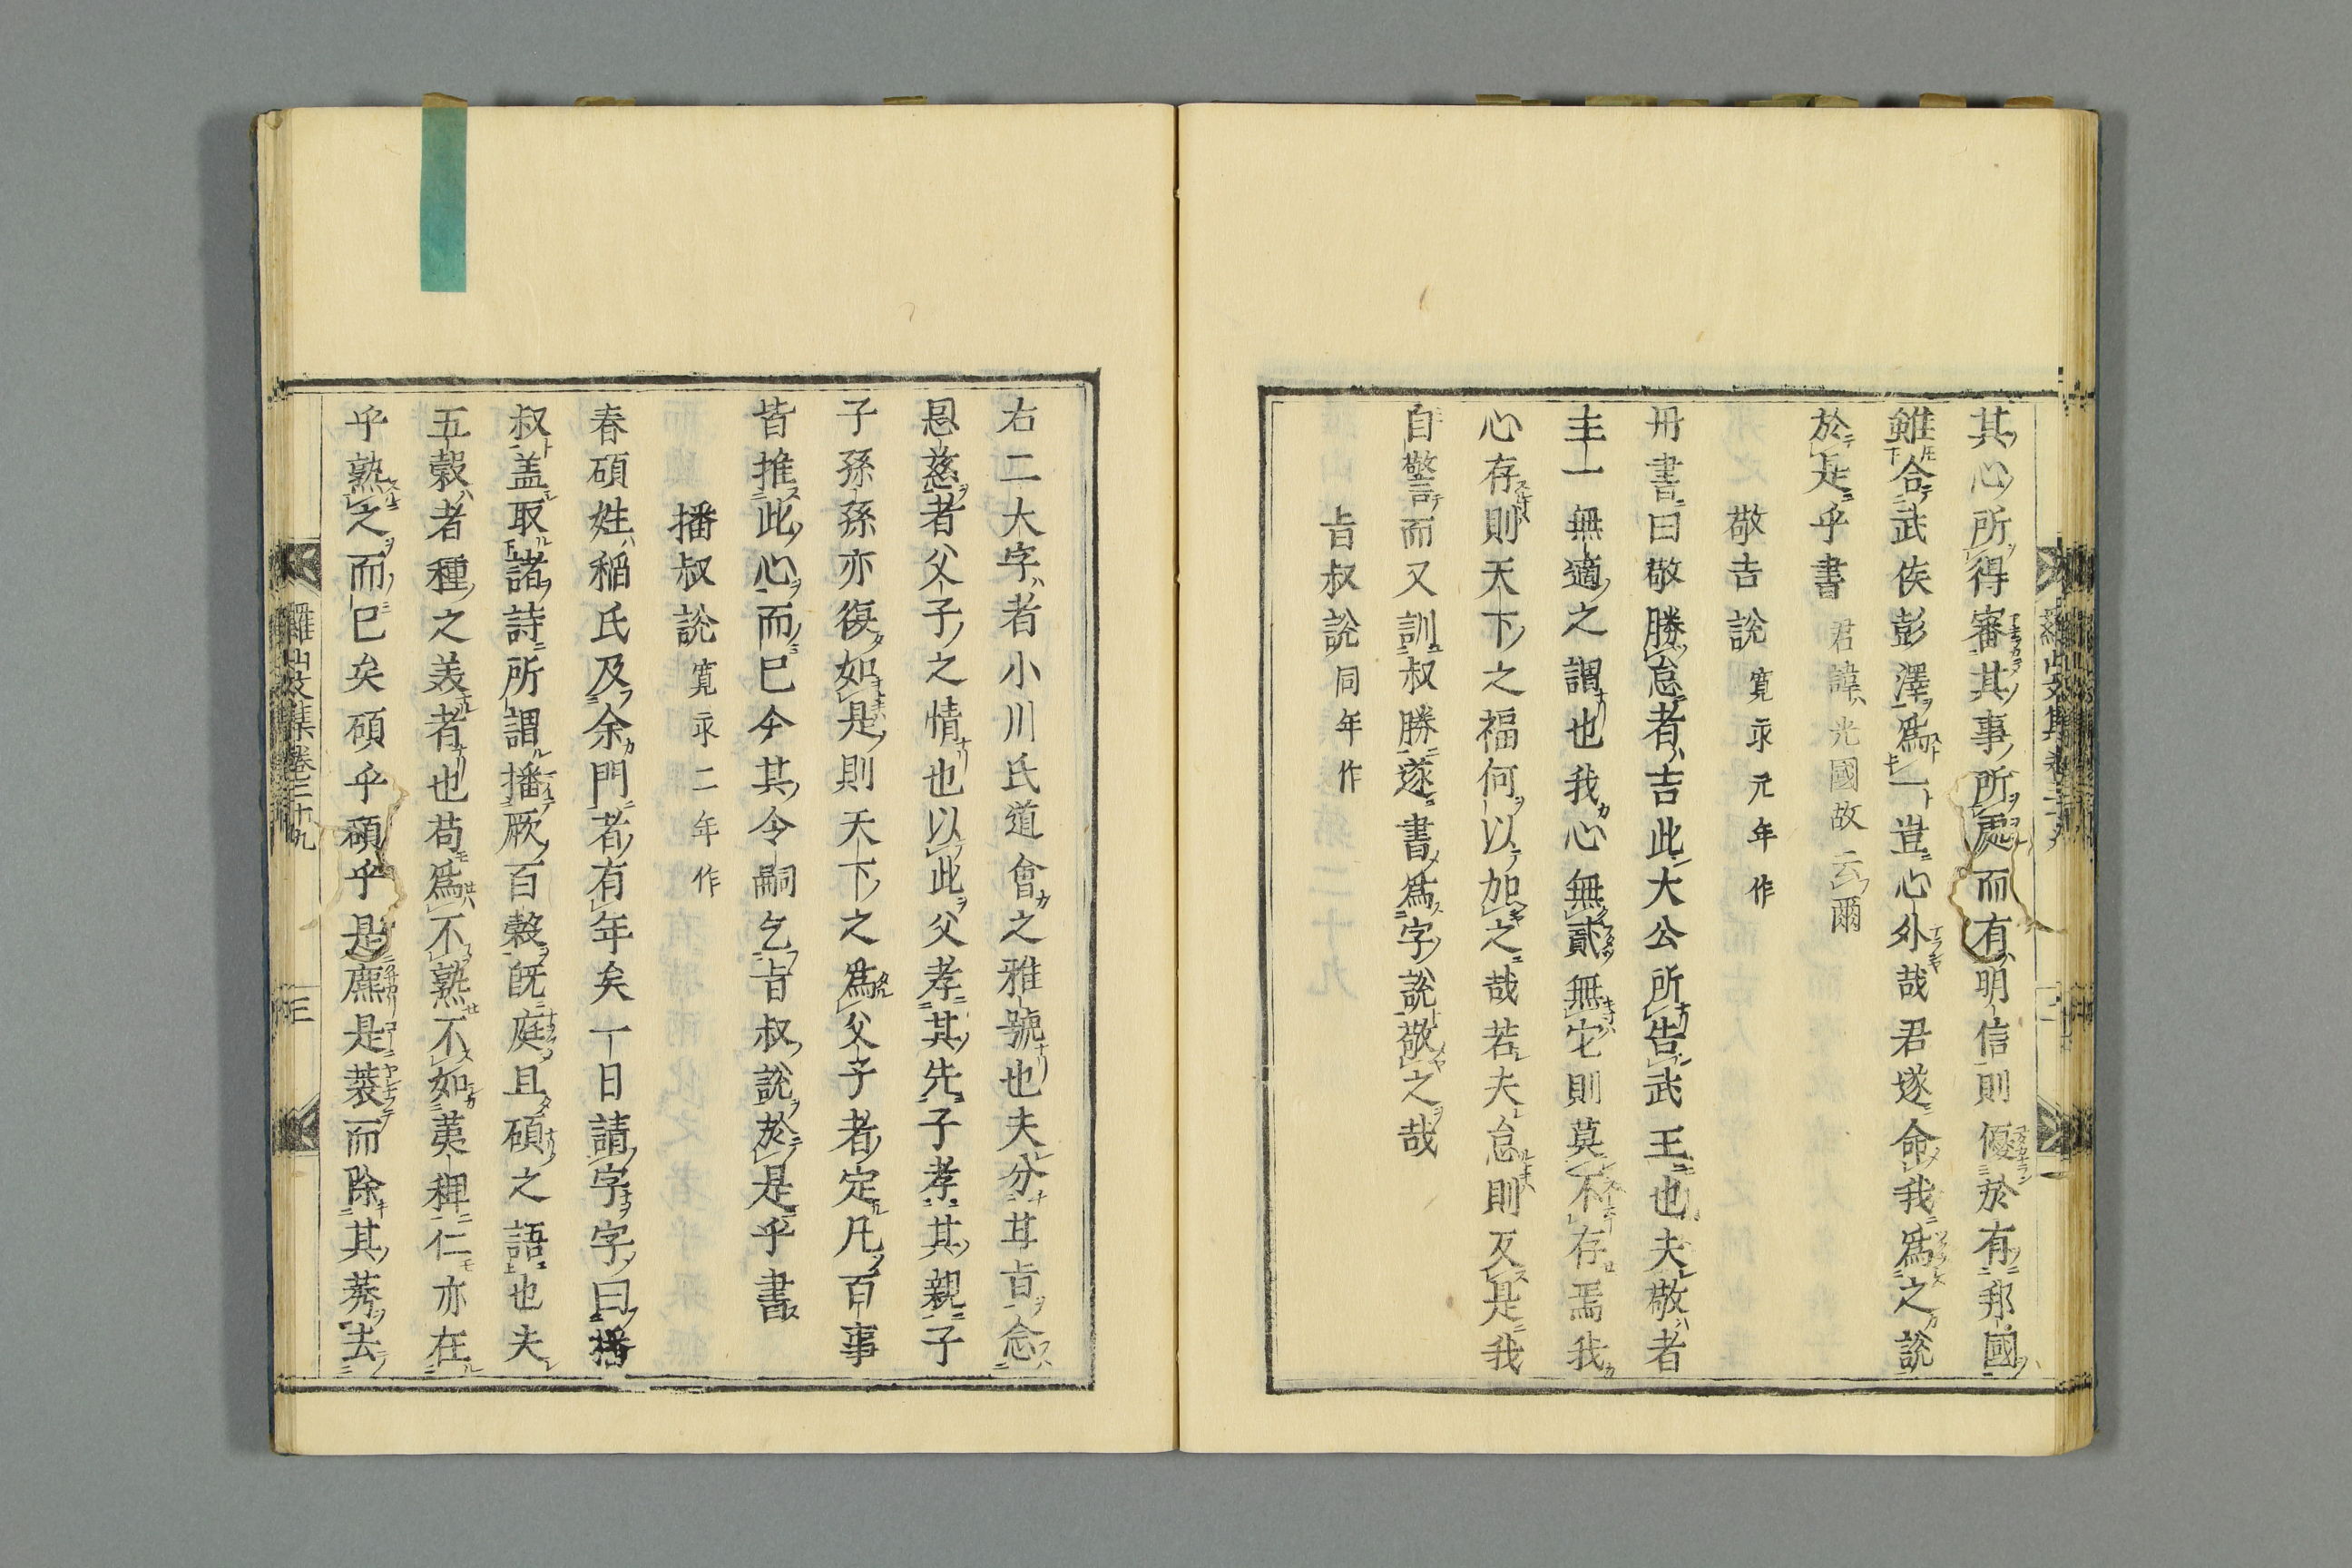 其心所得審其事所處而有明信則優於有邦國
雖合武侯彭澤爲一豈心外哉君遂命我爲之說
於是乎書 君諱光國故云爾
敬吉說 寛永元年作
丹書曰敬勝怠者吉此大公所告武王也夫敬者
主一無適之謂也我心無貳無它則莫不存焉我
心存則天下之福何以加之哉若夫怠則反是我
自警而又訓叔勝遂書爲字說敬之哉
旨叔說 同年作
右二大字者小川氏道會之雅號也夫分甘旨念
恩慈者父子之情也以此父孝其先子孝其親子
子孫孫亦復如是則天下之爲父子者定凡百事
皆推此心而已今其令嗣乞旨叔說於是乎書
播叔說 寛永二年作
春碩姓稲氏及余門者有年矣一日請字字曰播
叔盖取諸詩所謂播厥百穀旣庭且碩之語也夫
五穀者種之美者也苟爲不熟不如荑稗仁亦在
乎熟之而已矣碩乎碩乎是穮是蓘而除其莠去
羅山文集卷三十九 三